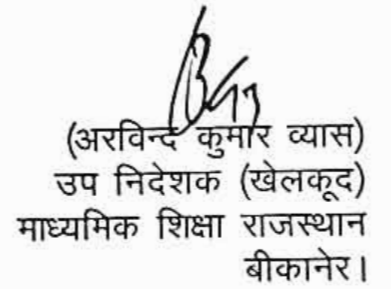 (अरविन्द कुमार व्यास)
उप निदेशक (खेलकूद)
माध्यमिक शिक्षा राजस्थान
बीकानेर।